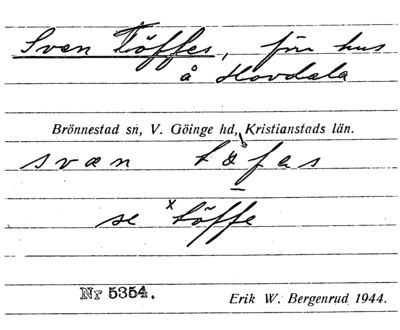 Sven Töffes, förr hus
å Hovdala
Brönnestad sn, V. Göinge hd, Kristianstads län.
svæn tøfas
se ˣTöffe
Nr 5354.
Erik W. Bergenrud 1944.